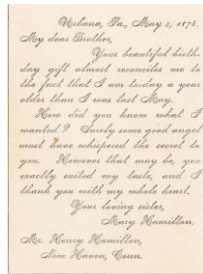 Urbana, Ia., May 2, 1878.
My dear Brother,
Your beautiful birth-
day gift almost reconciles me to
the fact that I am to-day a year
older than I was last May.
How did you know what I
wanted? Surely some good angel
must have whispered the secret to
you. However that may be, you
exactly suited my taste, and I
thank you with my whole heart.
Your loving sister,
Mary Hamilton.
Mr. Henry Hamilton,
New Haven, Conn.